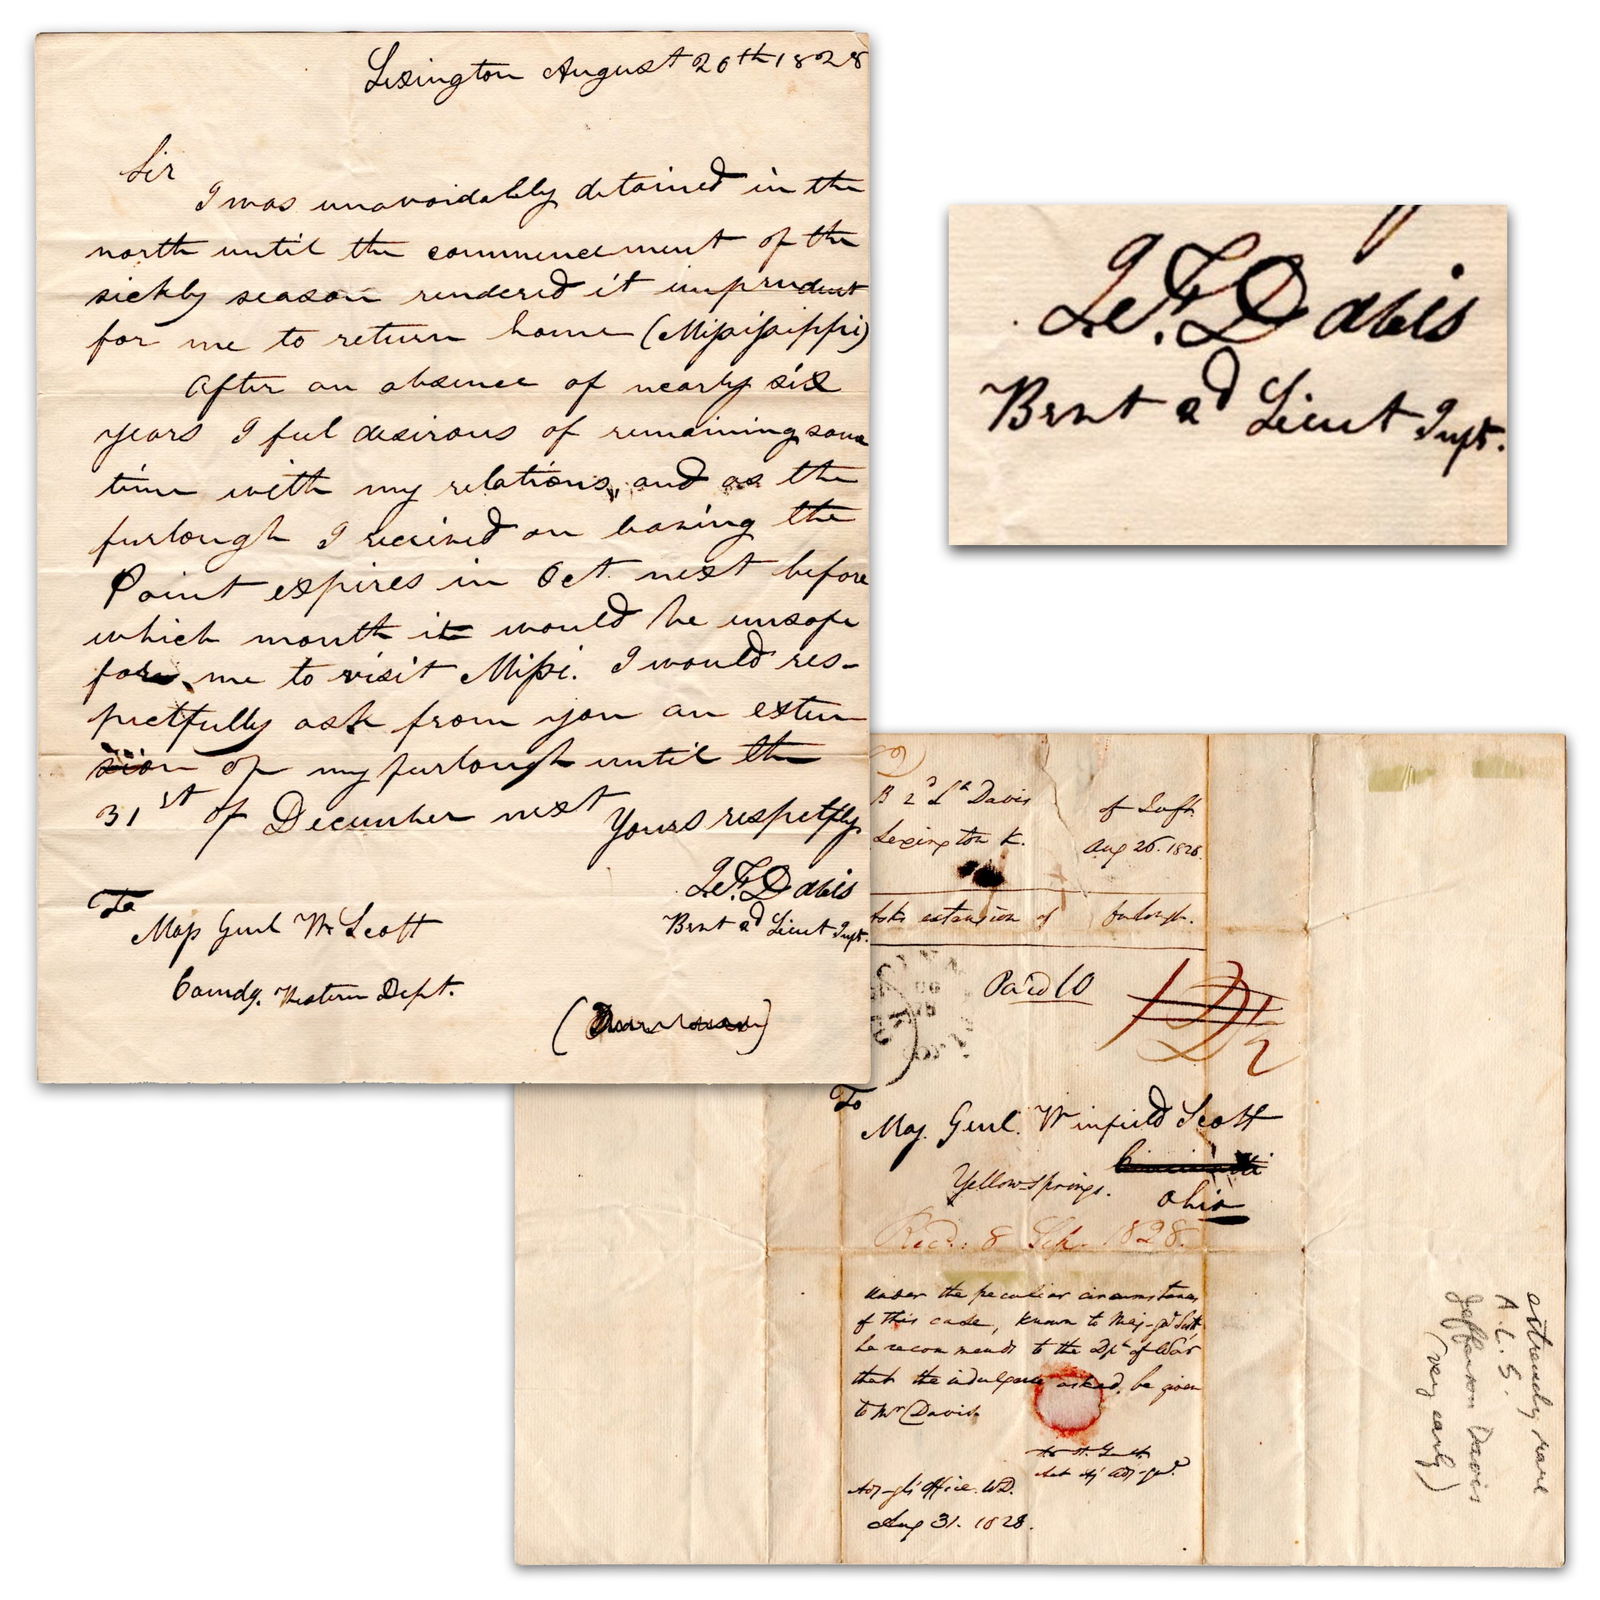 Lexington August 26th 1828
Sir
I was unavoidably detained in the
north until the commencement of the
sickly season rendered it imprudent
for me to return home (Mississippi)
After an absence of nearly six
years I feel desirous of remaining some
time with my relations, and as the
furlough I received on leaving the
Point expires in Oct. next before
which month it would be unsafe
for me to visit Missi. I would res-
pectfully ask from you an exten
sion of my furlough until the
31st of December next
Yours respctfly
J. F. Davis
Brvt 2d Lieut Inft.
To
Maj Genl W. Scott
Comdg. Western Dept.
J. F. Davis
Brvt 2d Lieut Inft.
B 2d Lt Davis of Inft.
Lexington K. Aug 26. 1828.
Asks extension of furlough.
Paid 10
To
Maj. Genl. Winfield Scott
Cincinnati
Yellow springs.
Ohio
Recd. 8 Sep. 1828.
Under the peculiar circumstances
of this case, known to Maj-Gl Scott
he recommends to the Dpt of War
that the indulgence asked, be given
to Mr Davis.
Adj-gl's Office. WD.
Aug 31. 1828.
extremely rare
A.L.S.
Jefferson Davis
(very early)